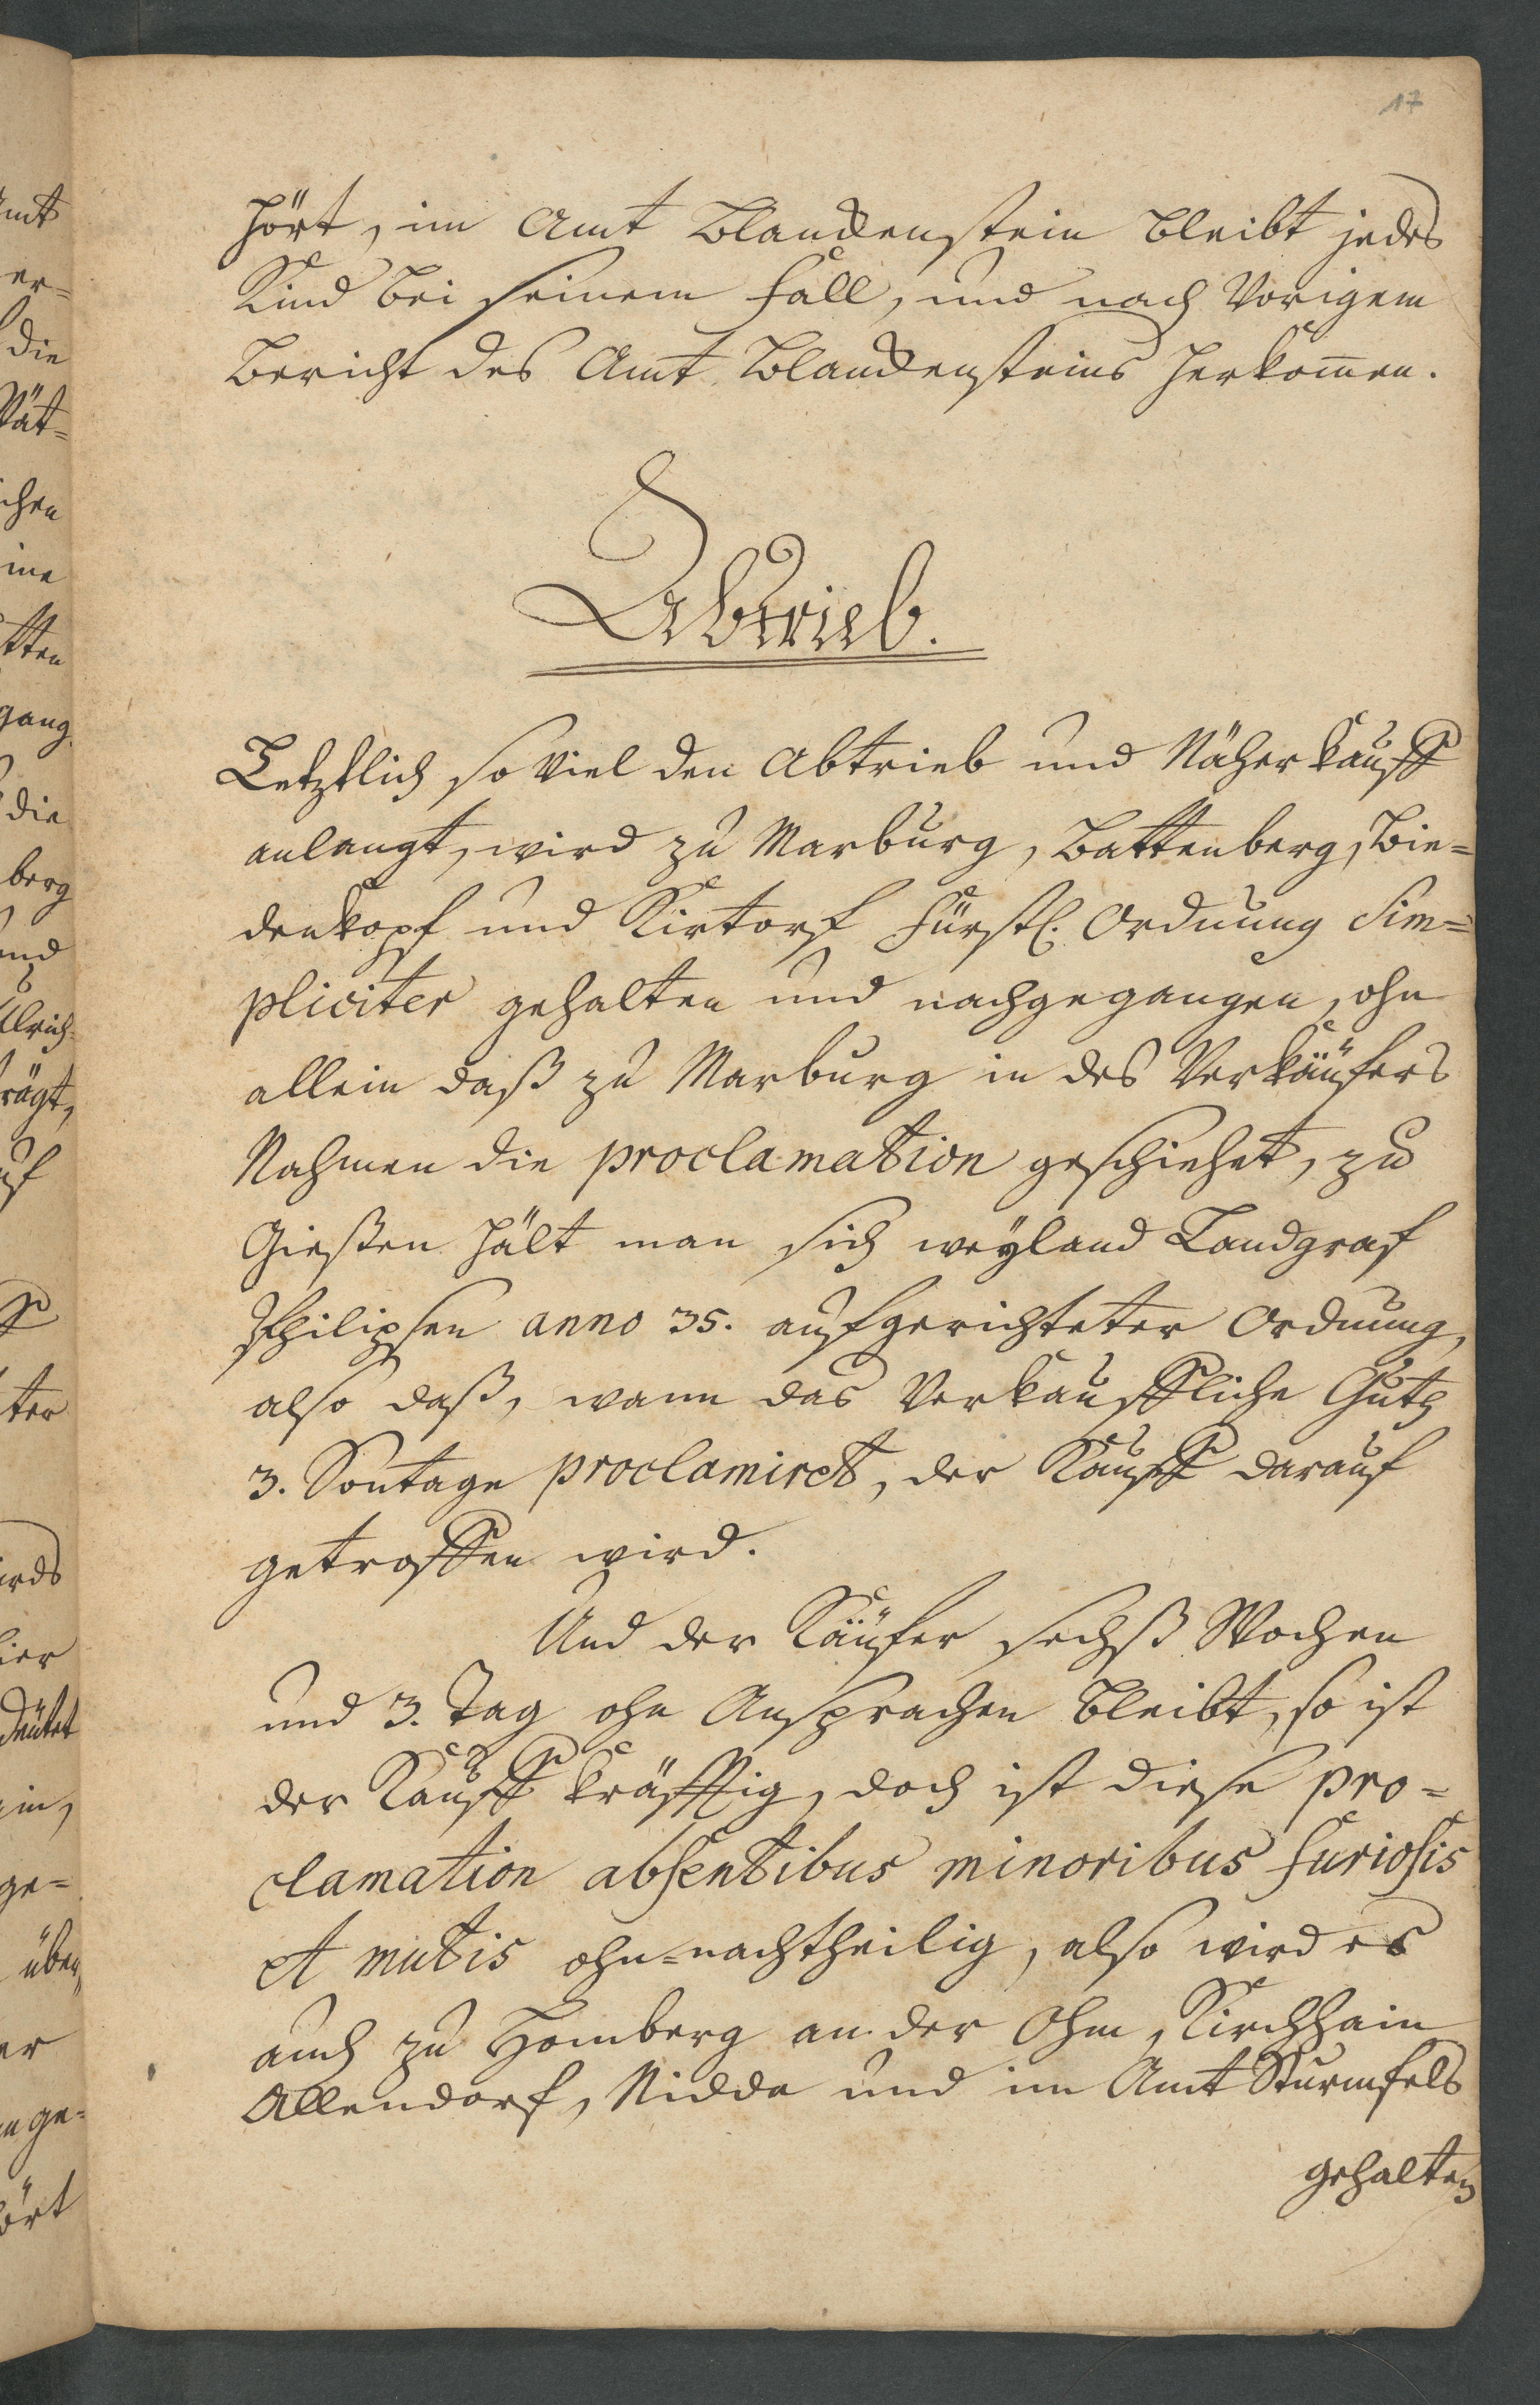 17
hört, im Amt Blanckenstein bleibt jedes
Kind bei seinem Fall, und nach Vorigem
Bericht des Amt Blanckensteins Herkom̄en.
Abtrieb.
Letztlich so viel den Abtrieb und Näherkauff
anlangt, wird zu Marburg, Battenberg, Bie=
denkopf und Kirtorf Fürstl. Ordnung Sim=
pliciter gehalten und nachgegangen, ohn
allein daß zu Marburg in des Verkäüfers
Nahmen die proclamation geschiehet, zu
Gießen hält man sich weyland Landgraf
Philipsen anno 35. aufgerichteter Ordnung,
also daß, wann das Verkauffliche Guth
3. Sontage proclamiret, der Kauff darauf
getroffen wird.
Und der Käüfer sechß Wochen
und 3. Tag ohn Ansprachen bleibt, so ist
der Kauff kräfftig, doch ist diese pro=
clamation absentibus minoribus furiosis
et mutis ohn=nachtheilig, also wird es
auch zu Homberg an der Ohm, Kirchhain
Allendorf, Nidda und im Amt Sturmfels
gehalten